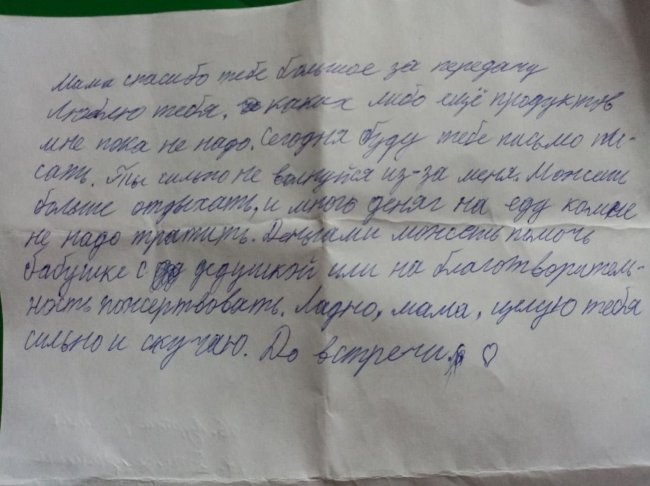 Мама спасибо тебе большое за передачу
Люблю тебя. каких либо ещё продуктов
мне пока не надо. Сегодня буду тебе письмо пи-
сать. Ты сильно не волнуйся из-за меня. Можешь
больше отдыхать, и много денег на еду ко мне
не надо тратить. Деньгами можешь помочь
бабушке с дедушкой или на благотворитель-
ность пожертвовать. Ладно, мама, целую тебя
сильно и скучаю. До встречи. ♡